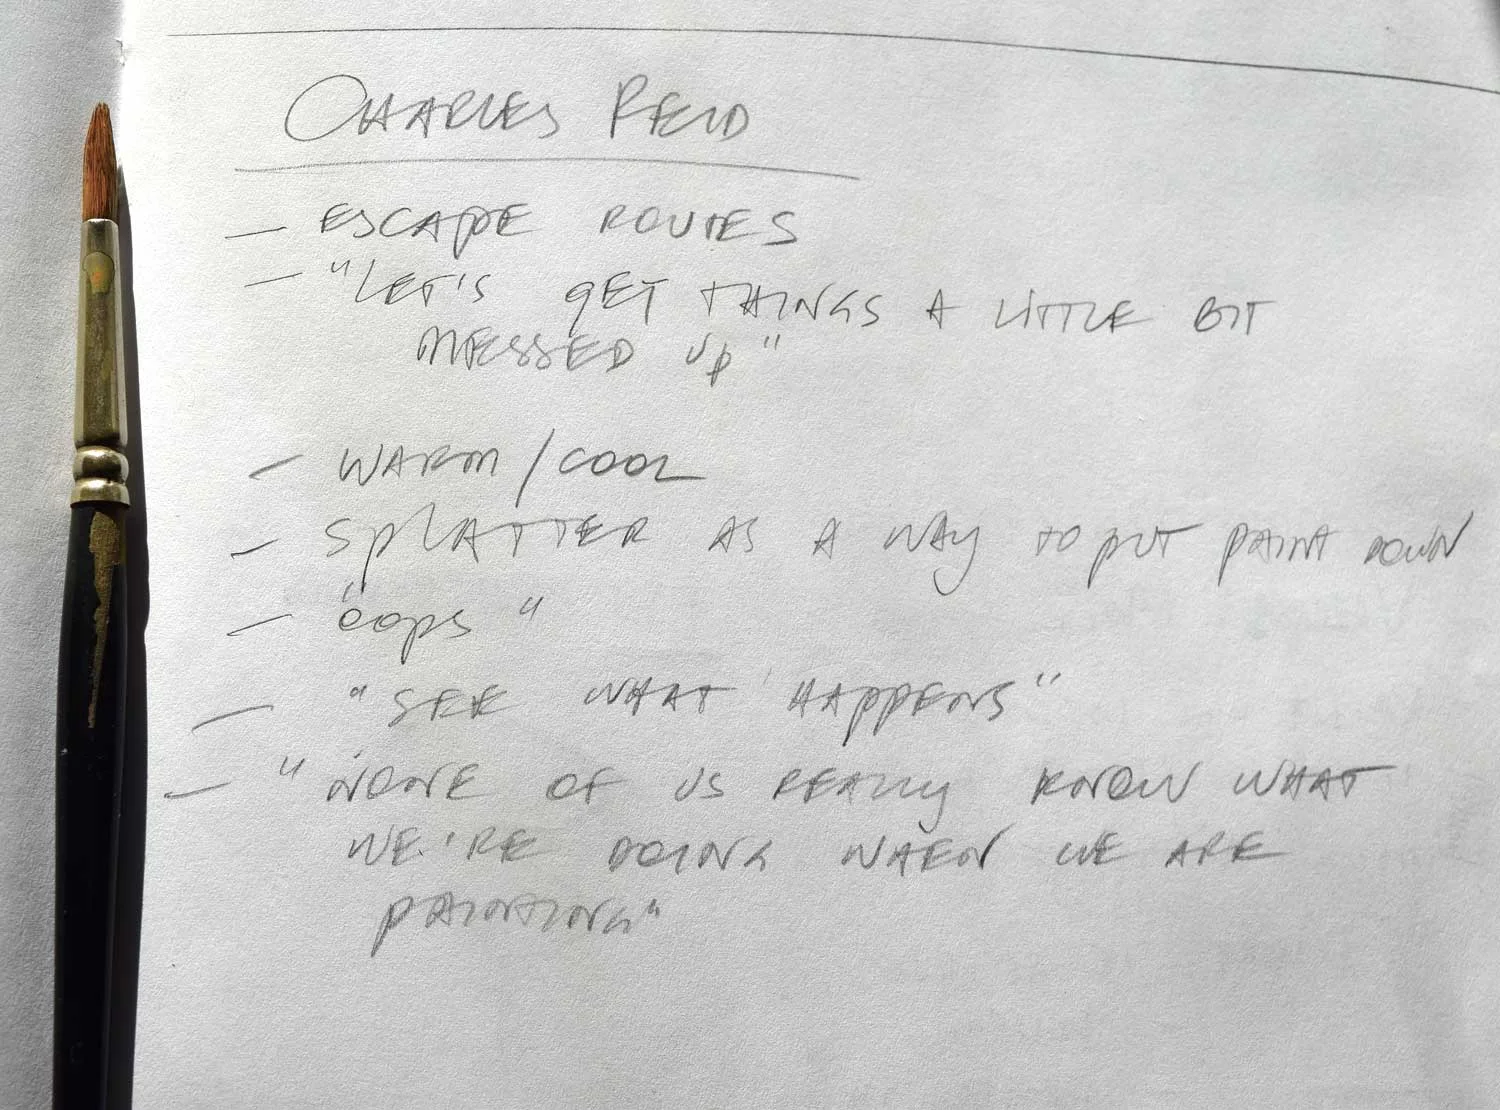 CHARLES REID
– ESCAPE ROUTES
– "LET'S GET THINGS A LITTLE BIT
MESSED UP"
– WARM/COOL
– SPLATTER AS A WAY TO PUT PAINT DOWN
– "OOPS"
– "SEE WHAT HAPPENS"
– "NONE OF US REALLY KNOW WHAT
WE'RE DOING WHEN WE ARE
PAINTING"